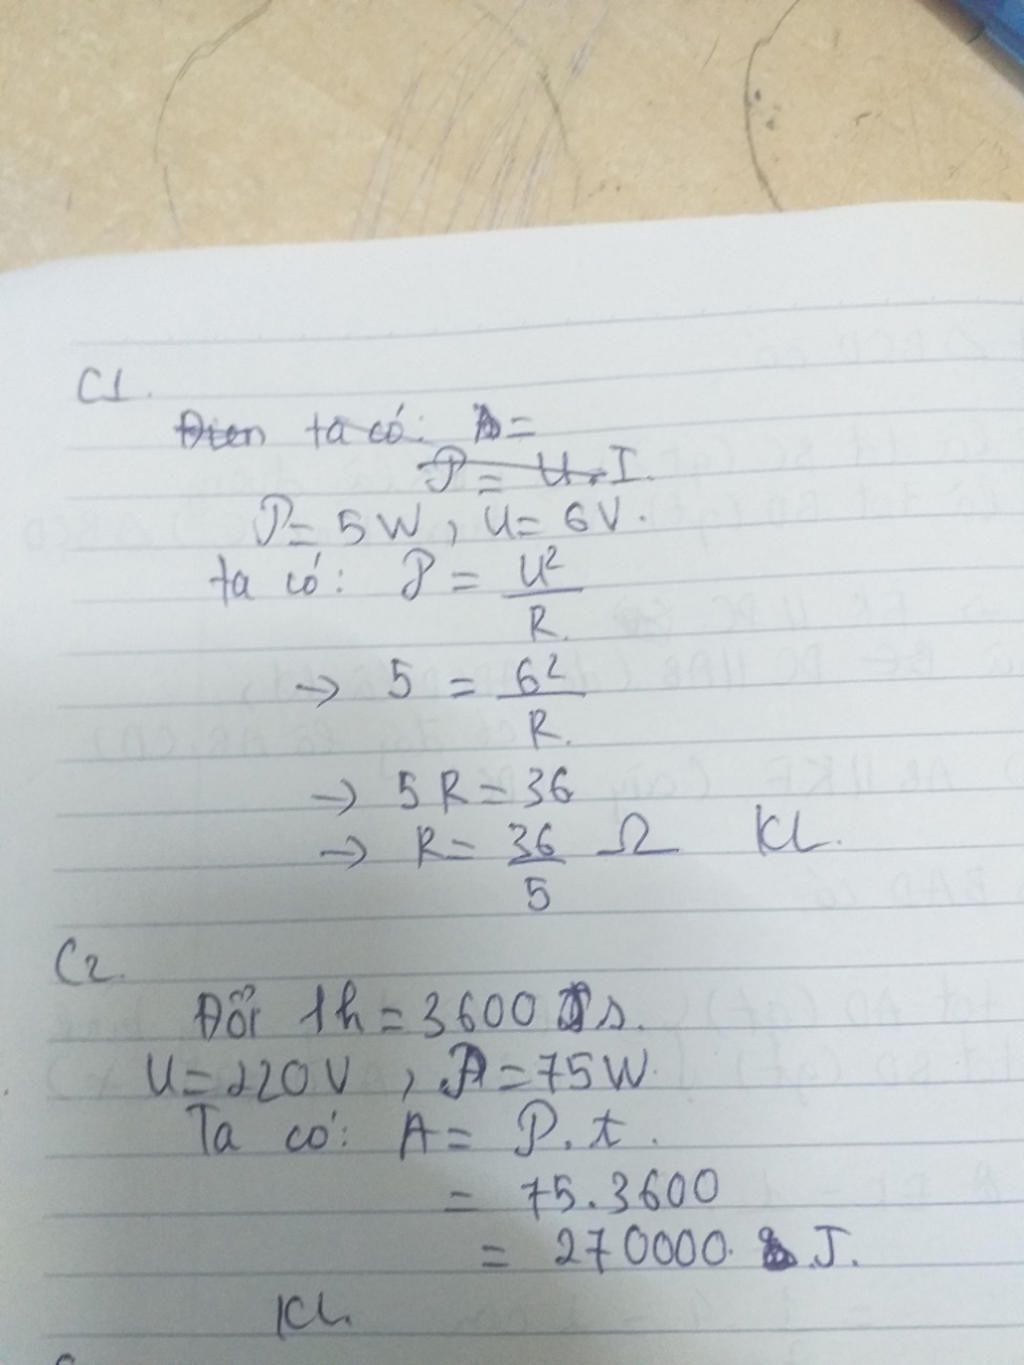 C1.
Điện ta có: A =
P = U.I.
P = 5W, U = 6V.
ta có: P = U²/R.
→ 5 = 6²/R.
→ 5R = 36
→ R = 36/5 Ω KL.
C2.
Đổi 1h = 3600 s.
U = 220V, P = 75W.
Ta có: A = P.t.
= 75.3600
= 270000 J.
KL.